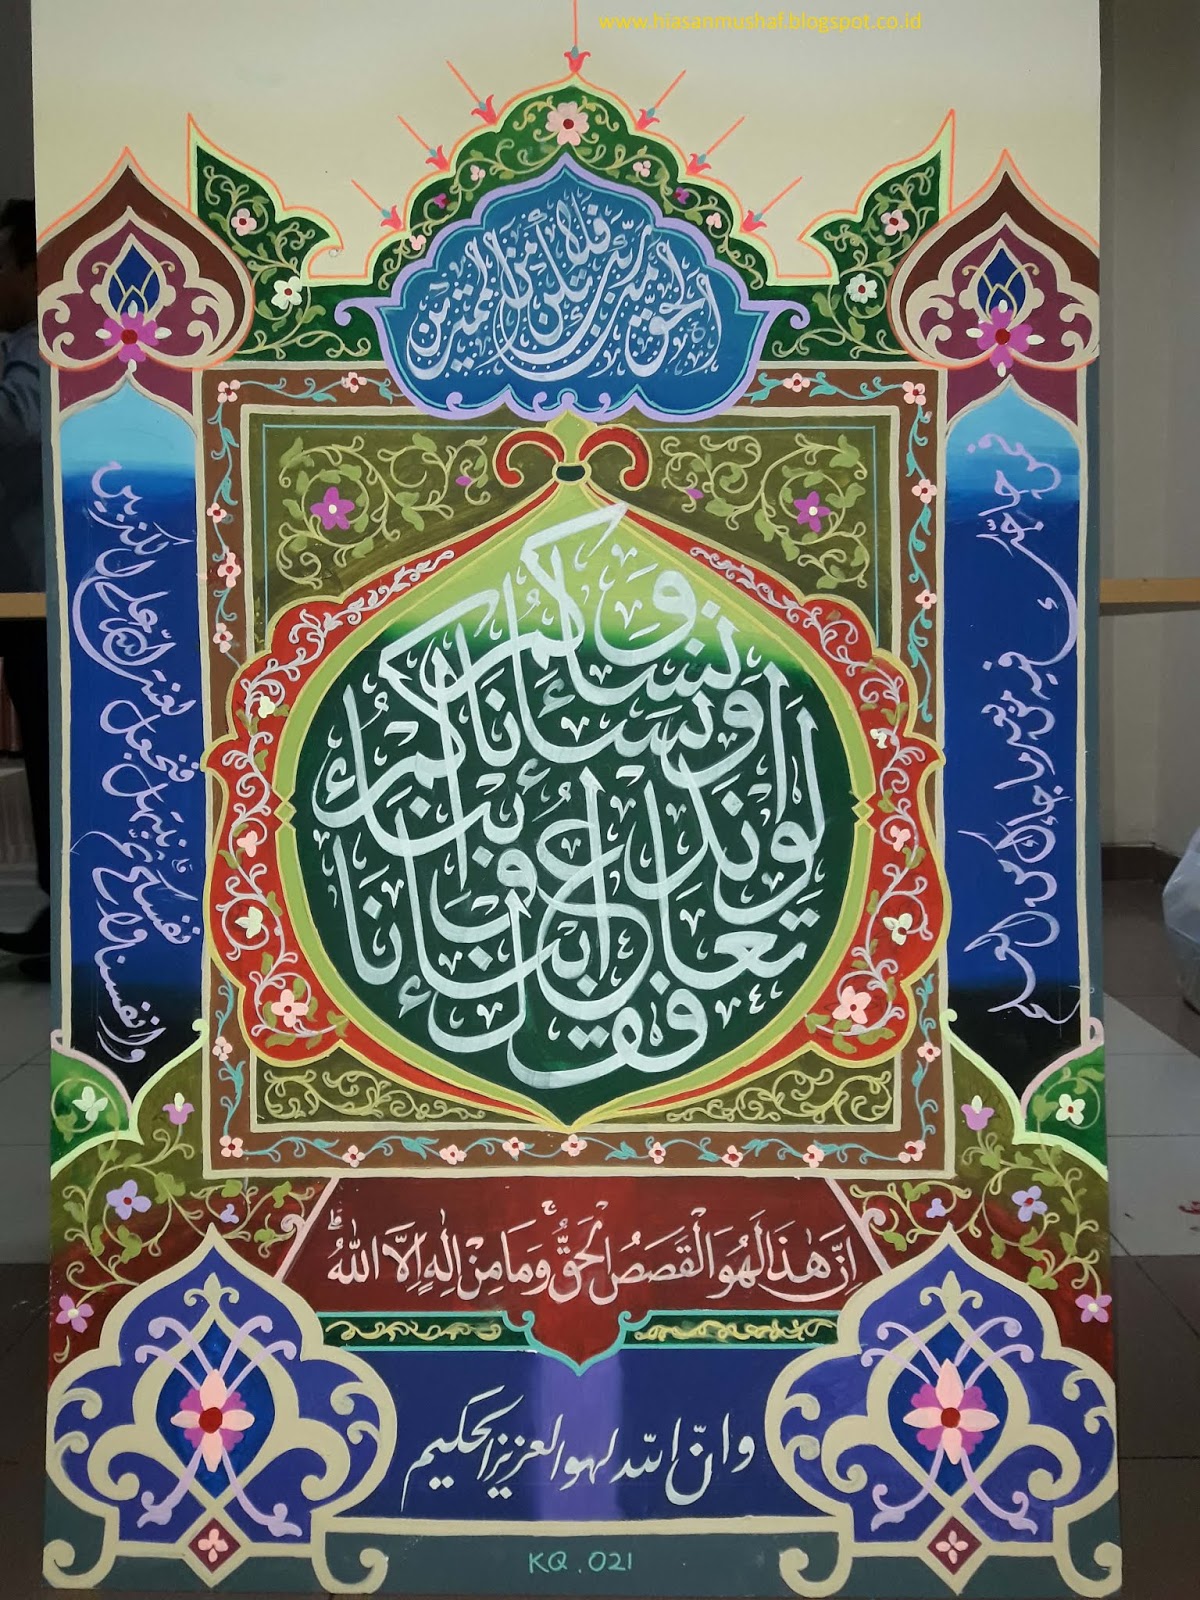 www.hiasanmushaf.blogspot.co.id
الحق من ربك فلا تكن من الممترين
فمن حاجك فيه من بعد ما جاءك من العلم
فقل تعالوا ندع أبناءنا وأبناءكم ونساءنا ونساءكم
وانفسنا وانفسكم ثم نبتهل فنجعل لعنت الله على الكذبين
اِنَّ هٰذَا لَهُوَ الْقَصَصُ الْحَقُّ وَمَا مِنْ اِلٰهٍ اِلَّا اللّٰهُ ۗ
وانّ اللّٰه لهو العزيز الحكيم
KQ . 021